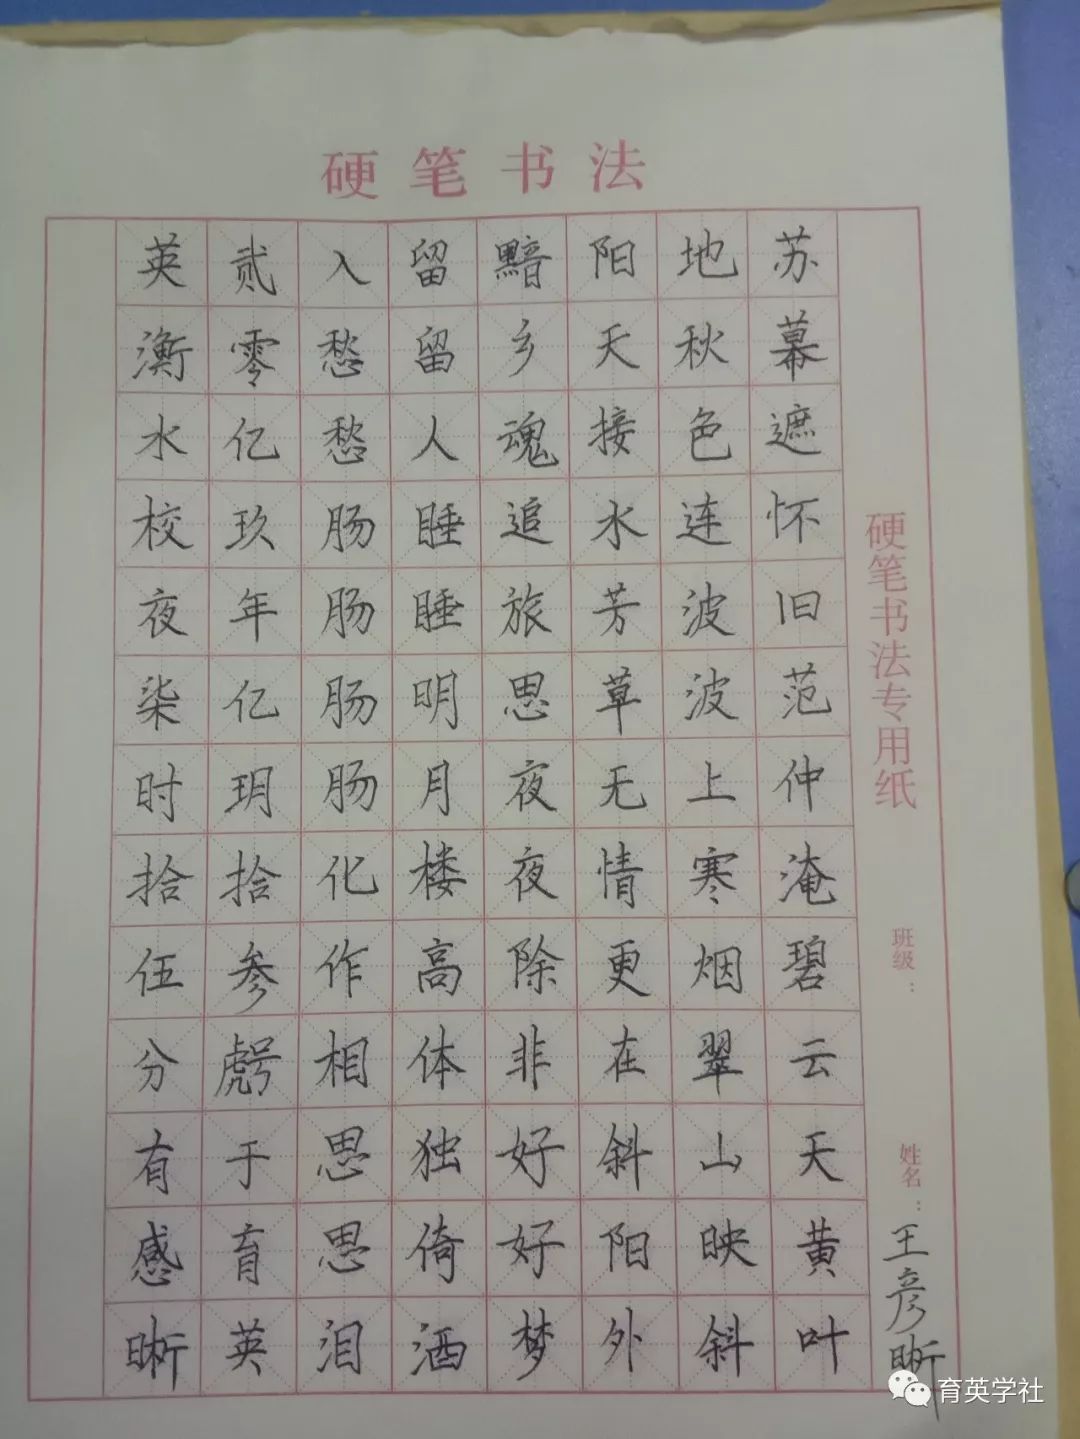 硬笔书法
硬笔书法专用纸
班级：
姓名：王彦晰
苏幕遮怀旧范仲淹碧云天黄叶
地秋色连波波上寒烟翠山映斜
阳天接水芳草无情更在斜阳外
黯乡魂追旅思夜夜除非好好梦
留留人睡睡明月楼高体独倚酒
入愁愁肠肠肠肠化作相思思泪
贰零亿玖年亿玥拾参號于育英
英衡水校夜柒时拾伍分有感晰
育英学社